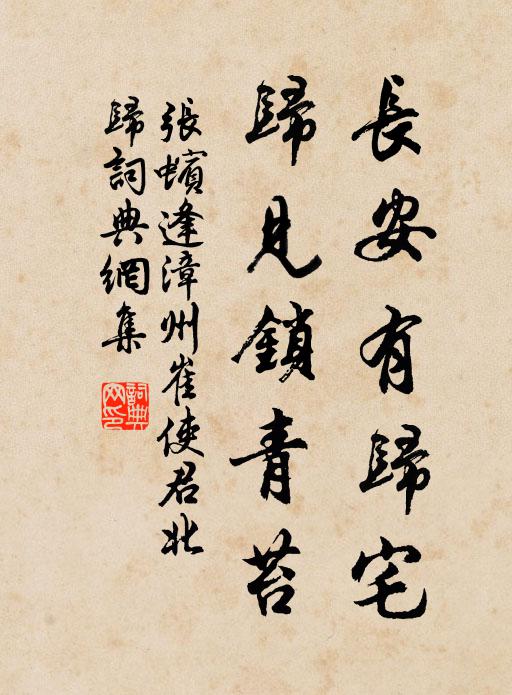 長安有歸宅
歸見鎖青苔
張蠙逢漳州崔使君北
歸詞典網集
詞典
网印